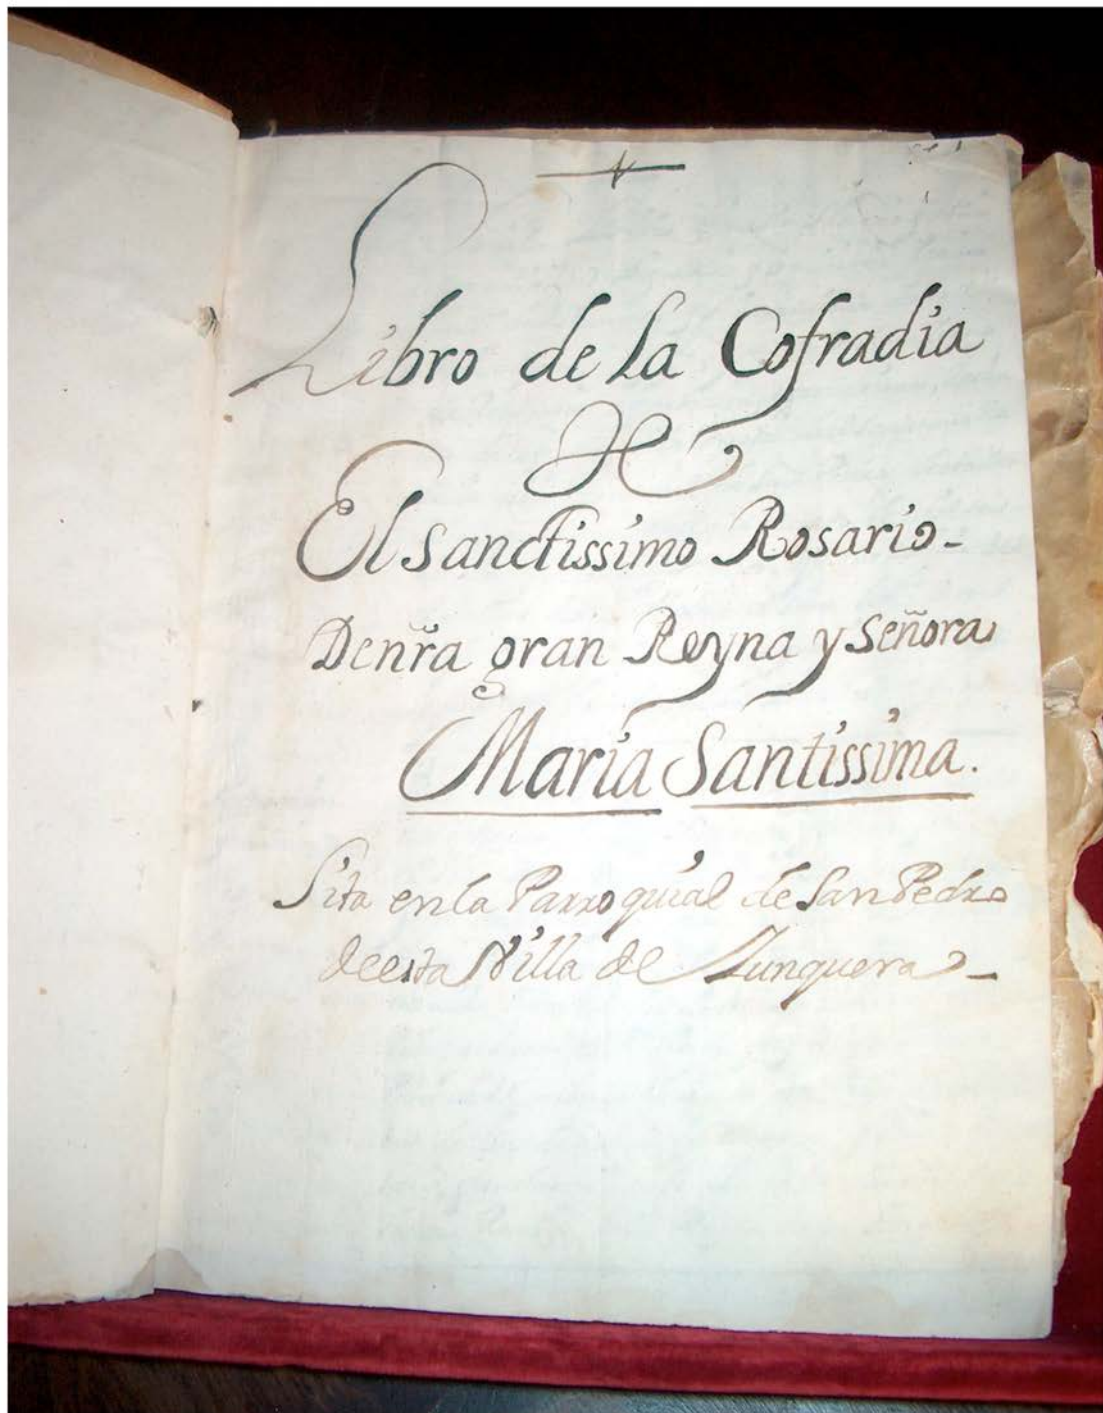 Libro de la Cofradia
De
El Sanctissimo Rosario-
De nr̃a gran Reyna y Señora
Maria Santissima.
Sita en la Parroquial de San Pedro
de esta Villa de Junquera-